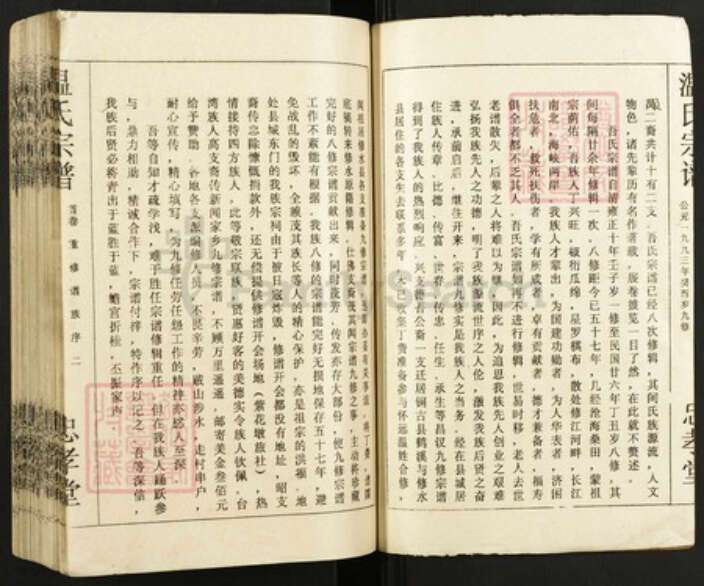 温氏宗谱
公元一九九三年癸酉岁九修
忠孝堂
万二裔共计十有二支。吾氏宗谱已经八次修辑，其间氏族源流，人文
物色，诸先辈历有名作著载，展卷披览一目了然，在此就不赘述。
吾氏宗谱自清雍正十年壬子岁一修至民国廿六年丁丑岁八修，其
间每隔廿余年修辑一次，八修距今已五十七年，几经沧海桑田，蒙祖
宗荫佑，吾族人丁兴旺，硕衍瓜绵，星罗棋布，散处修江河畔，长江
南北，海峡两岸，我族人才辈出，为国建功勋者，为人华表者，济困
扶危者，救死扶伤者，学有所成者，卓有贡献者，德才兼备者，福寿
俱全者都不乏其人。吾氏宗谱如再不进行修辑，世易时移，老人去世
老谱散失，后辈之人将难以为继，因此，为追思我族先人创业之艰难
弘扬我族先人之功德，明了我族源流世序之人伦，激发我族后贤之奋
进，承前启后，继往开来，宗谱九修实是我族人之当务。经在县城居
住族人传章、比德、传富、世群、传忠、任生、承生等昌议九修宗谱
得到了我族人的热烈响应，兴文德者公裔一支迁居铜古县鹤溪与修水
县居住的各支生去联系多年，
完好的八修宗谱贡献出来，同时茂芳、传发亦存大部份，使九修宗谱
工作不紊能有根据。我族八修的宗谱能完好无损地保存五十七年，避
免战乱的毁坏，全赖茂其族长等人的精心保护，亦是祖宗的洪福。地
处县城东门的我族宗祠由于被日寇炸毁，修谱开会都没有地址，昭支
裔传忠除慷慨捐款外，还无偿提供修谱开会场地（紫花墩旅社），热
情接待四方族人，此等敬宗联族，贤惠好客的美德实令族人钦佩，台
湾族人高支裔传新闻家乡九修宗谱，不顾万里遥遥，邮寄美金叁佰元
给予赞助。各地各支派编修人员，不畏辛劳，跋山涉水，走村串户，
耐心宣传，精心填写，为九修任劳任怨工作的精神亦感人至深。
吾等自知才疏学浅，难于胜任宗谱修辑重任，但在我族人踊跃参
与，鼎力相助，精诚合作下，宗谱付梓，特作序以记之。吾等深信，
我族后贤必将青出于蓝胜于蓝，蟾宫折桂，丕振家声。
温氏宗谱
首卷
重修谱族序
二
忠孝堂